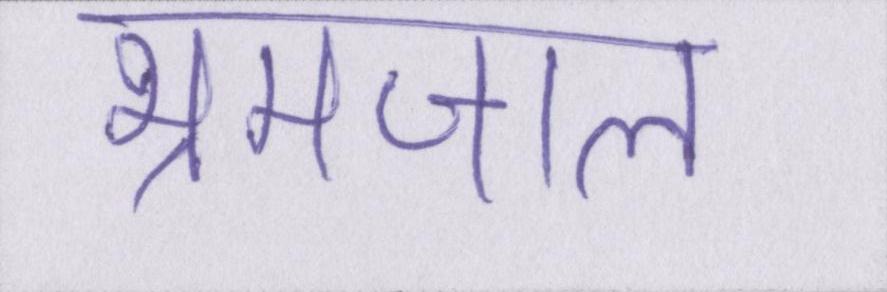 भ्रमजाल